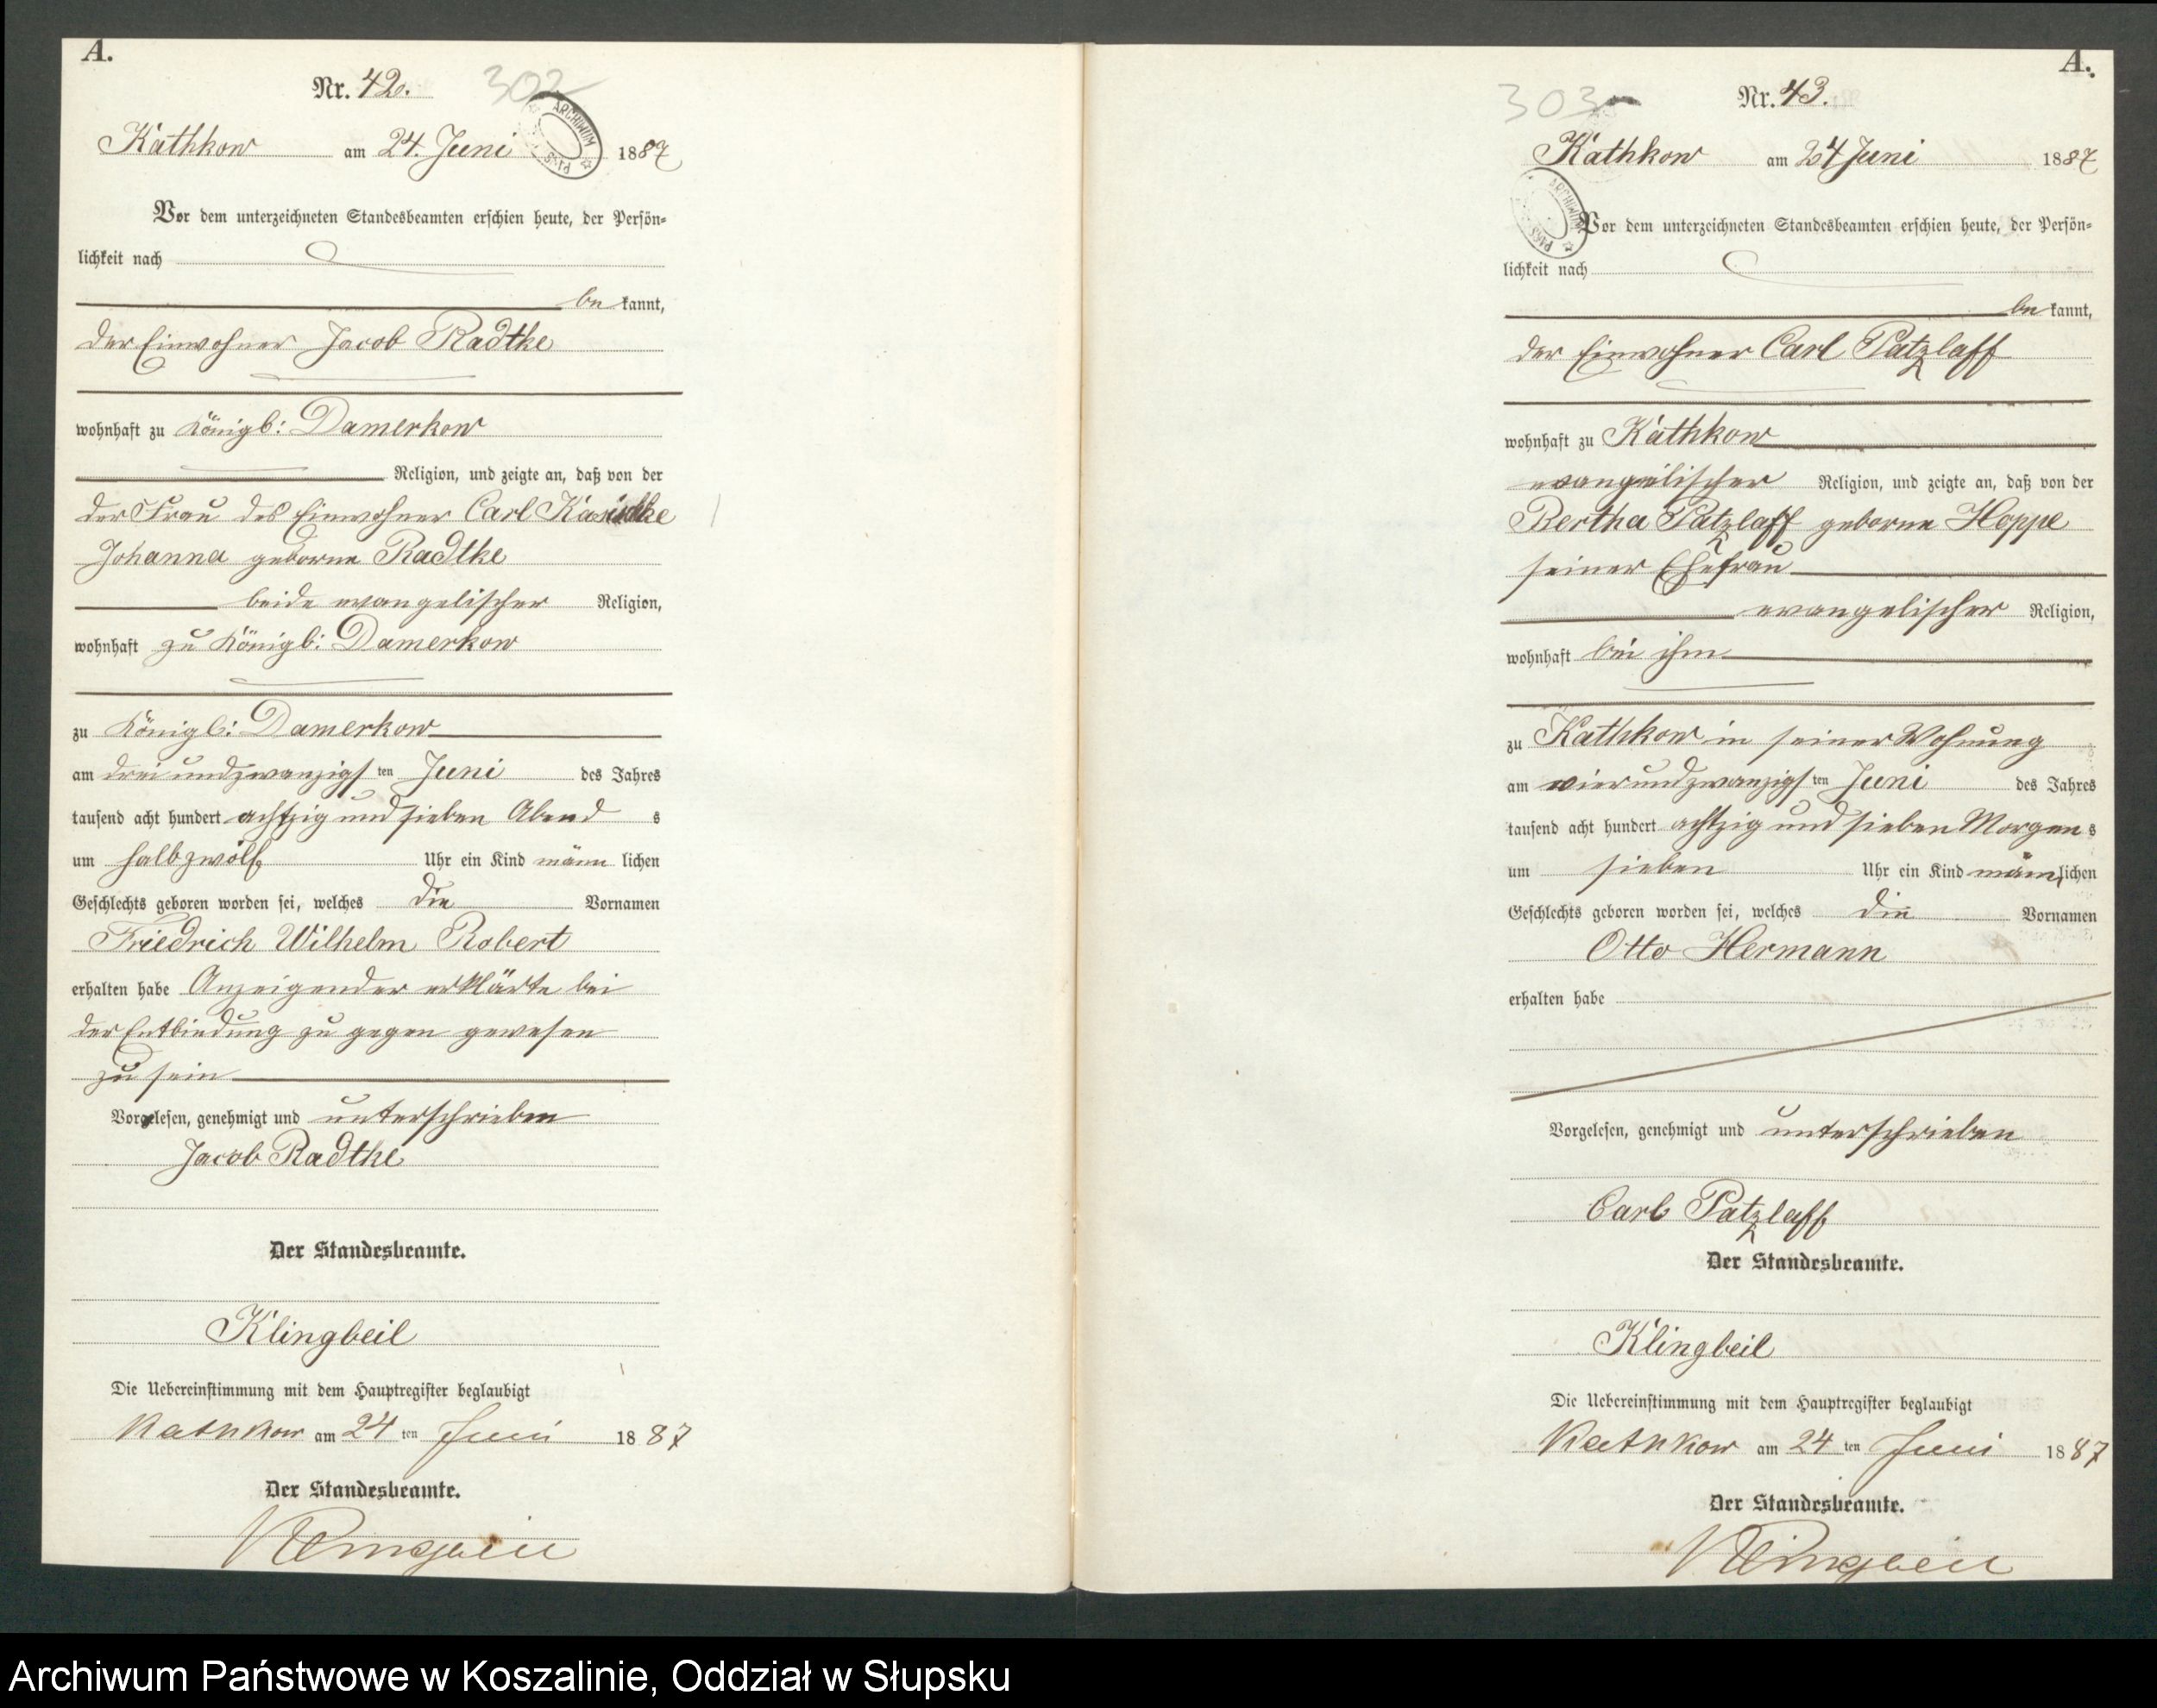 A.
Nr. 42.
302
ARCHIWUM
Kathkow am 24. Juni 1887
Vor dem unterzeichneten Standesbeamten erschien heute, der Persön-
lichkeit nach
be kannt,
der Einwohner Jacob Radtke
wohnhaft zu Königl: Damerkow
Religion, und zeigte an, daß von der
der Frau des Einwohner Carl
Johanna geborne Radtke
beide evangelischer Religion,
wohnhaft zu Königl: Damerkow
zu Königl: Damerkow
am drei und zwanzigsten Juni des Jahres
tausend acht hundert achtzig und sieben Abend s
um halb zwölf Uhr ein Kind männ lichen
Geschlechts geboren worden sei, welches die Vornamen
Friedrich Wilhelm Robert
erhalten habe Anzeigender erklärte bei
der Entbindung zu gegen gewesen
zu sein
Vorgelesen, genehmigt und unterschrieben
Jacob Radtke
Der Standesbeamte.
Klingbeil
Die Uebereinstimmung mit dem Hauptregister beglaubigt
Kathkow am 24 ten Juni 1887
Der Standesbeamte.
Klingbeil
A.
303
Nr. 43.
Kathkow am 24 Juni 1887
ARCHIWUM
Vor dem unterzeichneten Standesbeamten erschien heute, der Persön-
lichkeit nach
be kannt,
der Einwohner Carl Patzlaff
wohnhaft zu Kathkow
evangelischer Religion, und zeigte an, daß von der
Bertha Patzlaff geborne Hoppe
seiner Ehefrau
evangelischer Religion,
wohnhaft bei ihm
zu Kathkow in seiner Wohnung
am vier und zwanzigsten Juni des Jahres
tausend acht hundert achtzig und sieben Morgen s
um sieben Uhr ein Kind männlichen
Geschlechts geboren worden sei, welches die Vornamen
Otto Hermann
erhalten habe
Vorgelesen, genehmigt und unterschrieben
Carl Patzlaff
Der Standesbeamte.
Klingbeil
Die Uebereinstimmung mit dem Hauptregister beglaubigt
Kathkow am 24 ten Juni 1887
Der Standesbeamte.
Klingbeil
Archiwum Państwowe w Koszalinie, Oddział w Słupsku